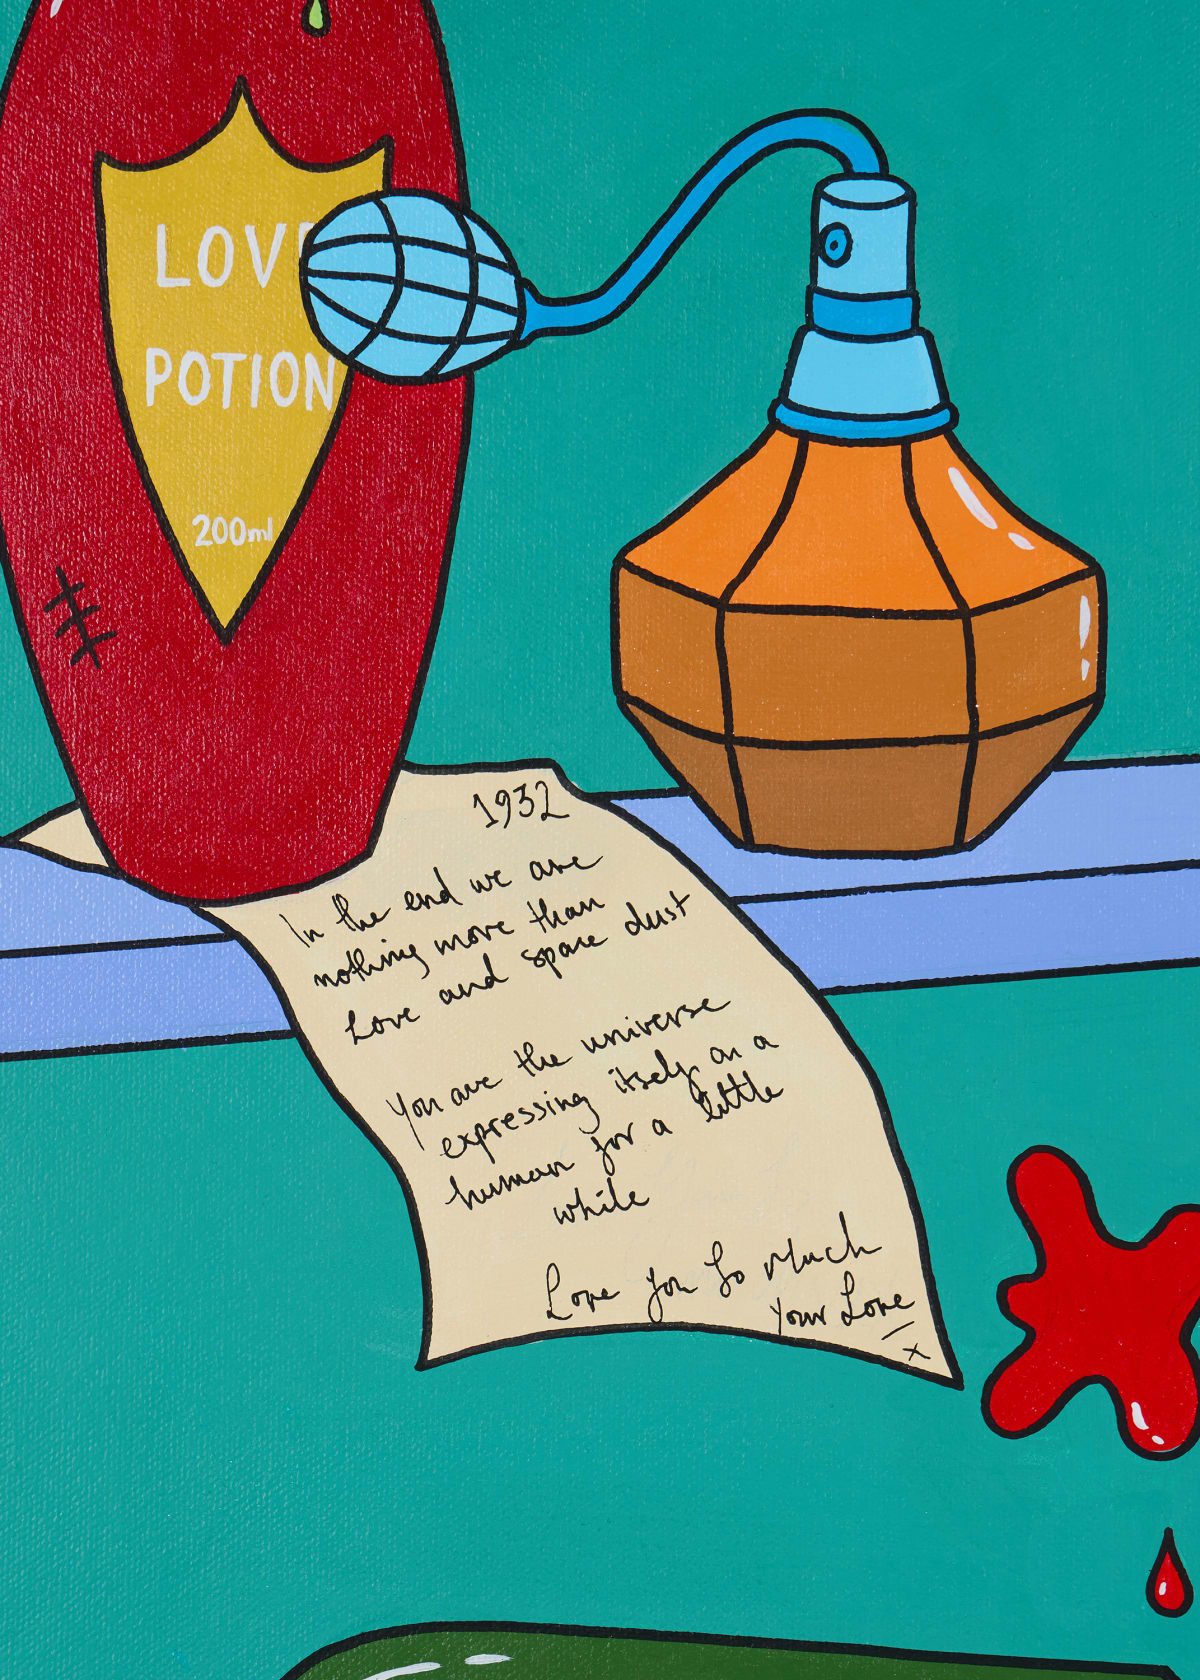 LOVE
POTION
200ml
1932
In the end we are
nothing more than
Love and space dust
You are the universe
expressing itself as a
human for a little
while
Love you so Much
Your Love
x